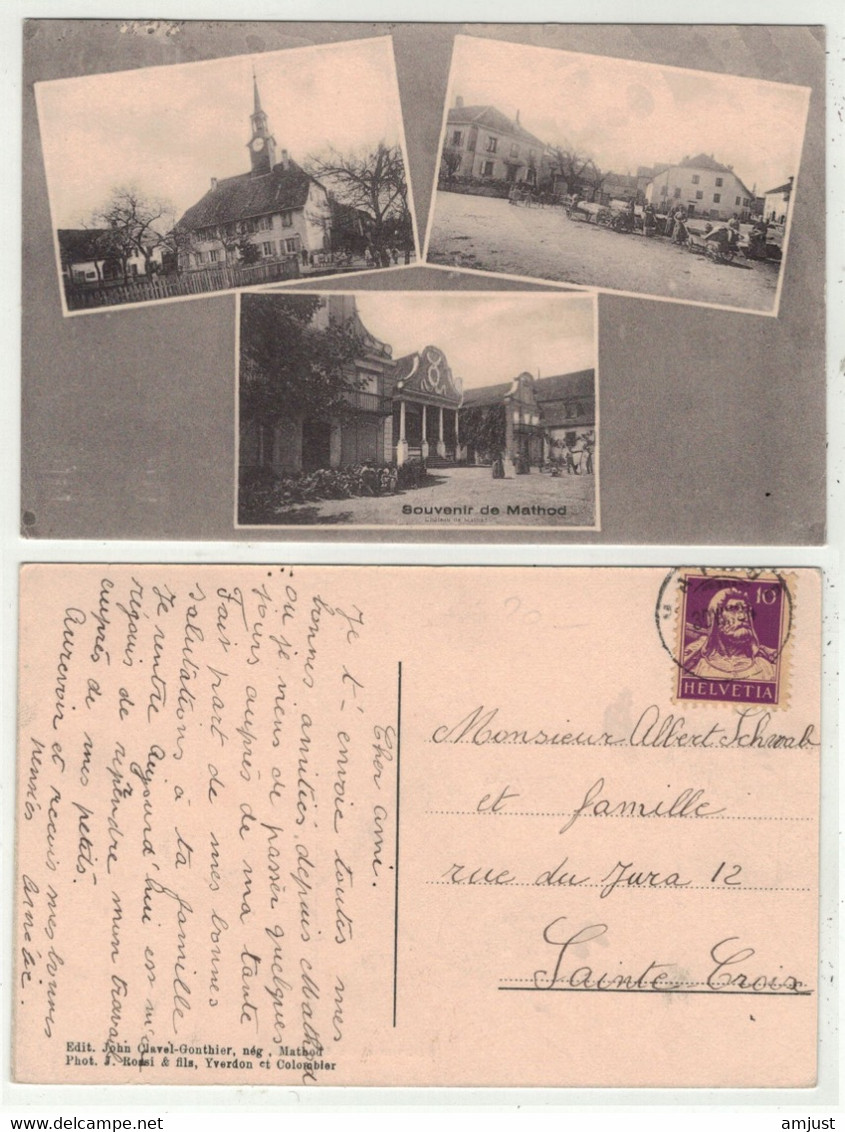 Souvenir de Mathod
Château de Mathod
Cher ami.
Je t'envoie toutes mes
bonnes amitiés, depuis Mathod
ou je viens de passer quelques
jours auprès de ma tante
Fait part de mes bonnes
salutations à ta famille
Je rentre aujourd'hui en m'a
rejouis de reprendre mon travail
auprès de mes petits.
Aurevoir et recois mes bonnes
pensées
10
HELVETIA
Monsieur Albert Schwab
et famille
rue du Jura 12
Sainte Croix
Edit. John Clavel-Gonthier, nég., Mathod
Phot. J. Rossi & fils, Yverdon et Colombier
delcampe.net
amjust